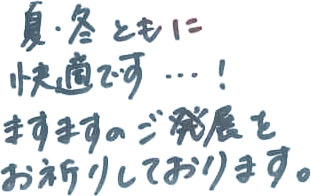 夏・冬ともに
快適です…!
ますますのご発展を
お祈りしております。